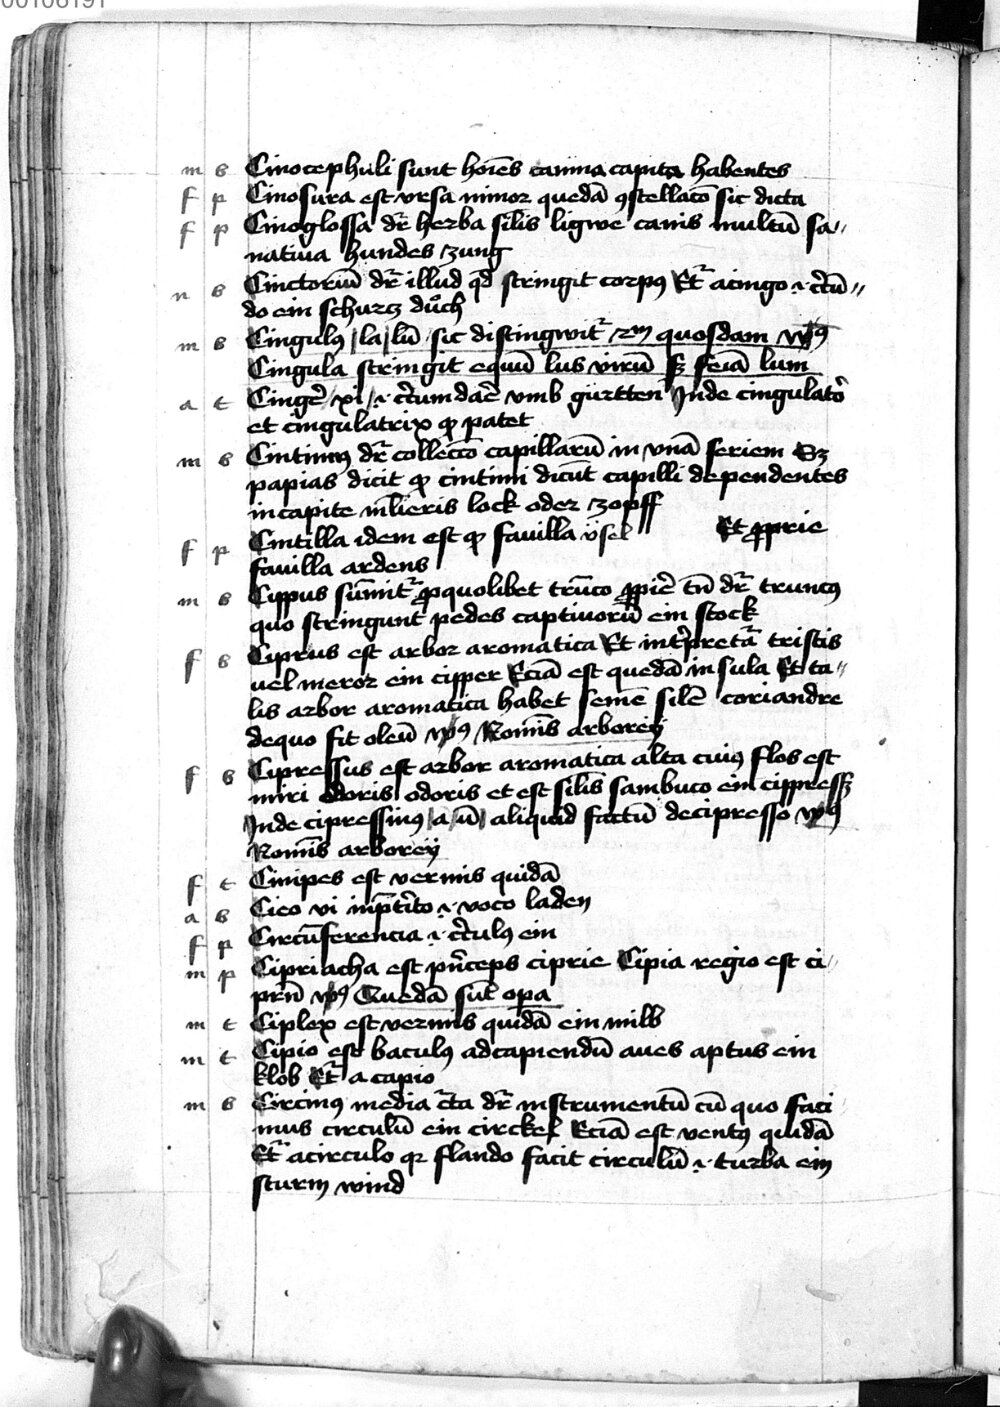 00106191
m s Cinocephuli sunt hoīes canina capita habentes
f p Cinosura est vrsa minor quedā ꝯstellacō sic dicta
f p Cinoglossa dr̄ herba silis ligwe canis multū sa⸗
natiua hundes zung
n s Cinctoriū dr̄ illud qd̄ stringit corpꝰ Et̄ acingo
do ein schurcz důch
m s Cingulꝰ la lū sic distingwit̄ quosdam
Cingula stringit equū lus virū sꝫ feīā lum
a t Cingē xi dāē vmb gürtten Inde cingulatō
et cingulatrix ꝙ patet
m s Cintinꝰ dr̄ collecco capillarū in vnā seriem Sꝫ
papias dicit ꝙ cintini dicūt capilli dependentes
in capite mlieris lock oder zopff
f p Cintilla idem est ꝙ fauilla üsel Et ꝓprie
fauilla ardens
m s Cippus sūmit̄ ꝓ quolibet trūco ꝓpiē tn̄ dr̄ truncꝰ
quo stringunt pedes captiuorū ein stock
f s Ciprus est arbor aromatica Et int̄pretā tristis
uel meror ein cipper Eciā est quedā insula Et ta⸗
lis arbor aromatica habet semē silē coriandre
de quo fit oleū Nomīs arboreÿ
f s Cipressus est arbor aromatica alta cuiꝰ flos est
miri odoris odoris et est silis sambuco ein cippressꝫ
Inde cipressinꝰ a ū aliquid factū de cipresso
Nomīs arboreÿ
f t Cinipes est vermis quidā
a s Cieo vi voco laden
f p Circūferencia circulꝰ ein
m p Cipriacha est pn̄ceps ciprie Cipia regio est ci⸗
prn̄ Quedā sūt opa
m t Ciplex est vermis quidā ein milb
m t Cipio est baculꝰ ad capiendū aues aptus ein
klob Et̄ a capio
m s Circinꝰ media dr̄ instrumentū cū quo faci
mus circulū ein circkel Eciā est ventꝰ quidā
Et̄ a circulo qr flando facit circulū turba ein
sturm wind